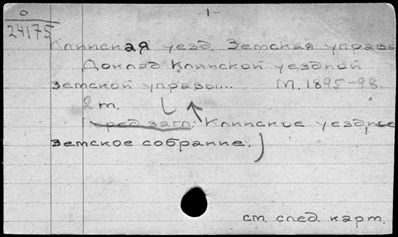 -1-
0
24175
Клинская уезд. Земская управа
Доклад Клинской уездной
земской управы... М. 1895-98.
2 т.
Пред загл: Клинское уездное
земское собрание.
см. след. карт.